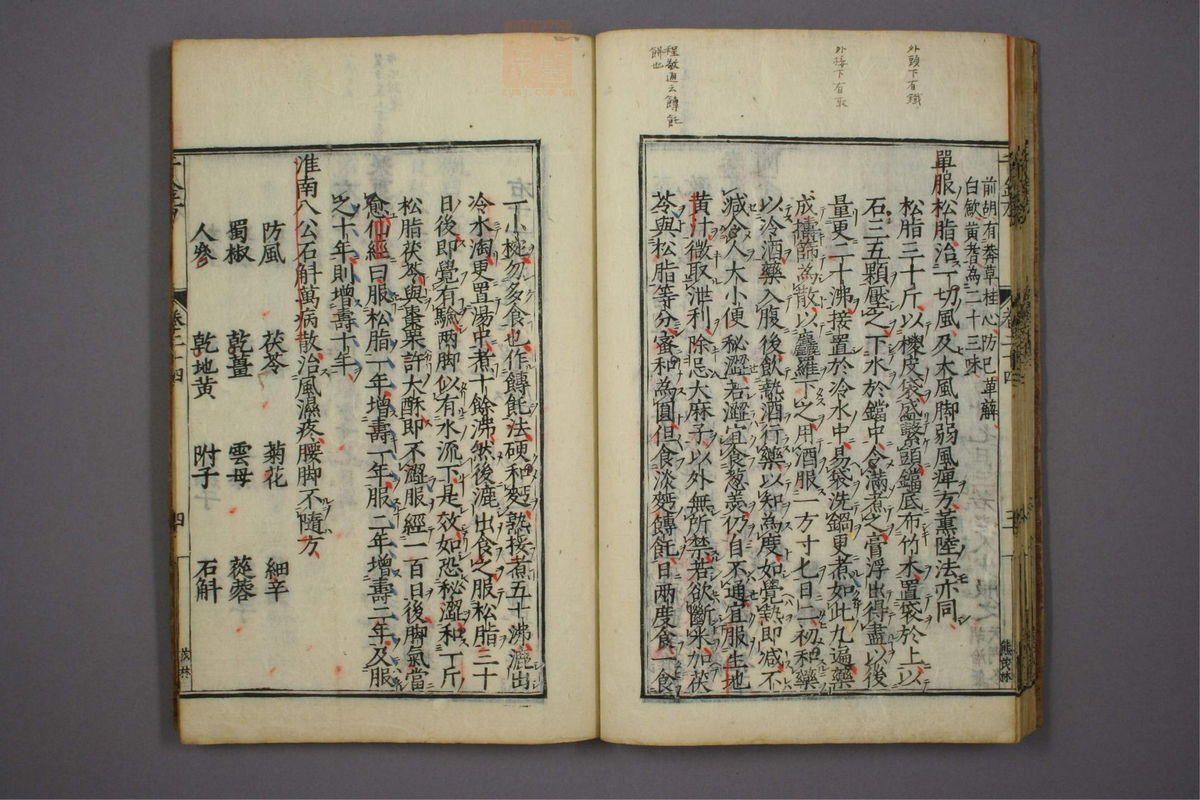 外頭下有鐵
外接下有取
程敬通云餺飥
餅也
前胡有莽草桂心防巳萆解
白歛黄耆為二十三味
單服松脂治一切風及大風脚弱風痺方薰陸法亦同
松脂三十斤以椶皮袋盛繫頭鐺底布竹木置袋於上以
石三五顆壓之下水於鐺中令滿煮之膏浮出得盡以後
量更二十沸接置於冷水中易袋洗鍋更煮如此九遍藥
成擣篩為散以麤羅下之用酒服一方寸匕日二初和藥
以冷酒藥入腹後飲熱酒行藥以知為度如覺熱即减不
减令人大小便秘澀若澀宜食葱羹仍自不通宜服生地
黄汁微取泄利除忌大麻子以外無所禁若欲斷米加茯
苓與松脂等分蜜和為圓但食淡麪餺飥日兩度食一食
一小椀勿多食也作餺飥法硬和麪熟挼煮五十沸漉出
冷水淘更置湯中煮十餘沸然後漉出食之服松脂三十
日後即覺有驗兩脚似有水流下是效如恐秘澀和一斤
松脂茯苓與棗栗許大酥即不澀服經一百日後脚氣當
愈仙經曰服松脂一年增壽一年服二年增壽二年及服
之十年則增壽十年
淮南八公石斛萬病散治風濕疼腰脚不隨方
防風 茯苓 菊花 細辛
蜀椒 乾薑 雲母 蓯蓉
人參 乾地黄 附子 石斛
卷二十四
三
熊茂林
卷二十四
四
茂林